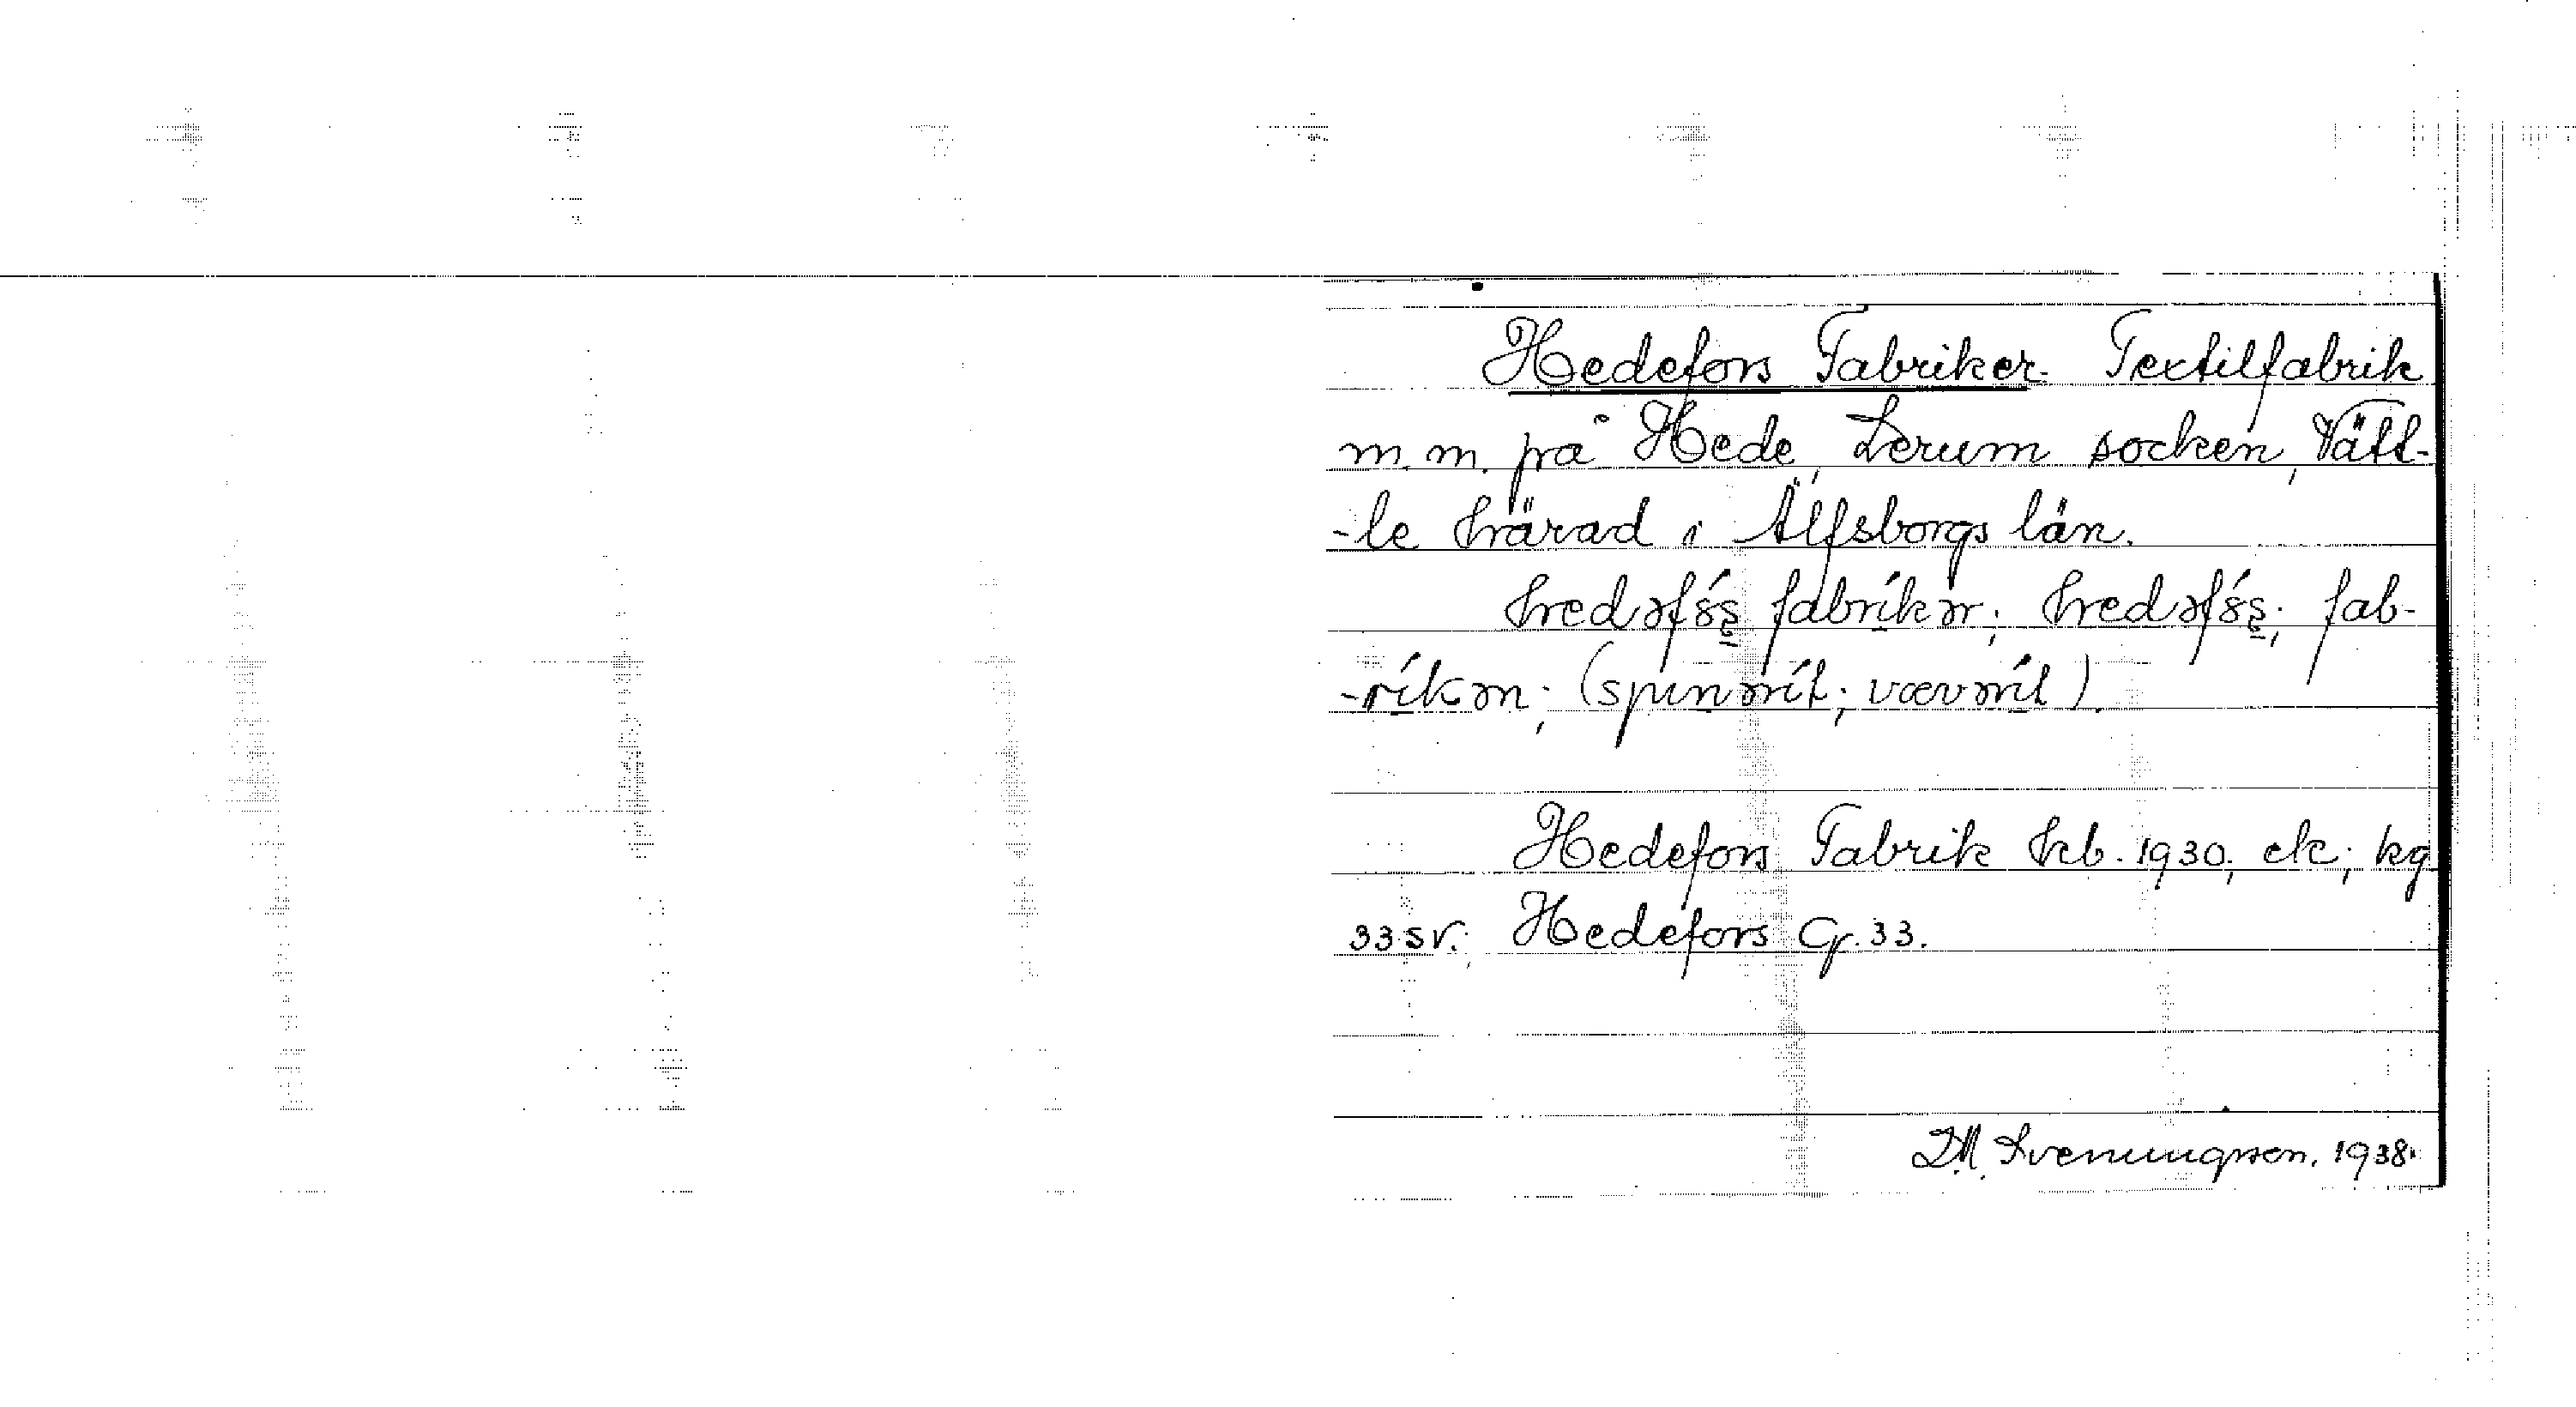 Hedefors Fabriker. Textilfabrik
m.m. på Hede, Lerum socken, Vätt-
-le härad i Älfsborgs län.
hedəfórs fabríkər; hedəfórs; fab-
-ríkən; (spinərít; vævərít).
Hedefors Fabrik hcb. 1930; ek; kg
33 sv.; Hedefors Gr. 33.
1938.